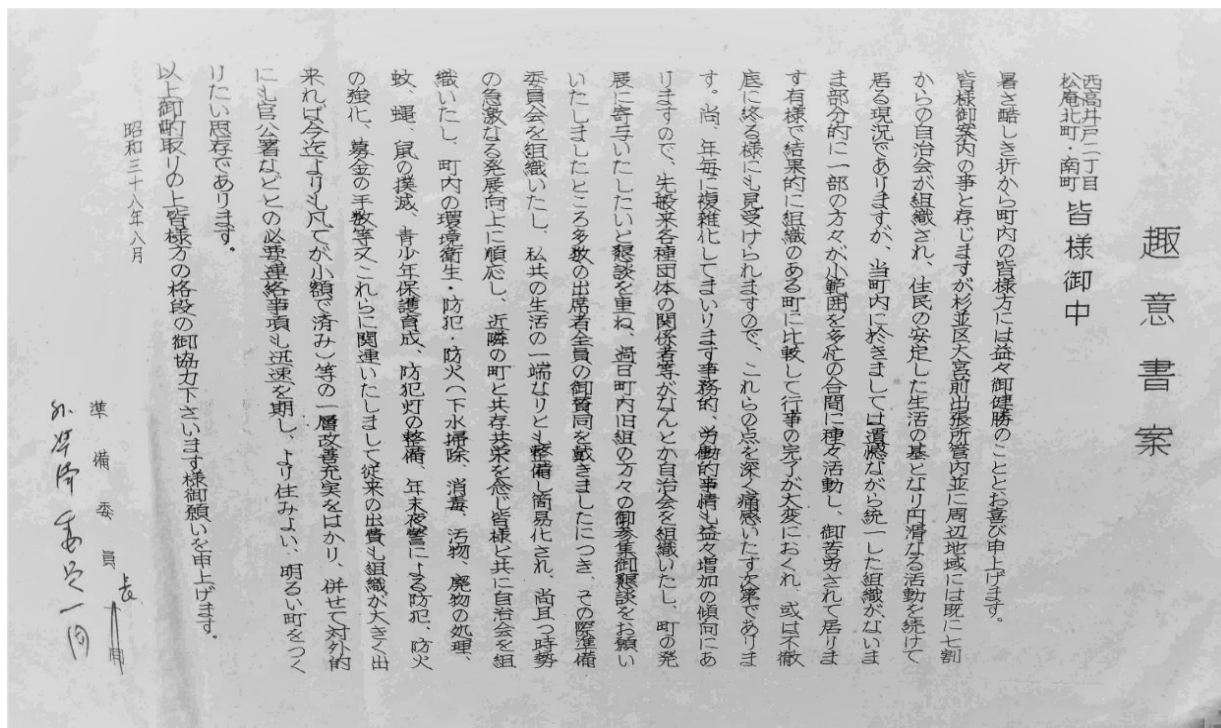 趣意書案
西高井戸二丁目
松庵北町・南町 皆様御中
暑さ酷しき折から町内の皆様方には益々御健勝のこととお喜び申上げます。
皆様御案内の事と存じますが杉並区大宮前出張所管内並に周辺地域には既に七割
からの自治会が組織され、住民の安定した生活の基となり円滑なる活動を続けて
居る現況でありますが、当町内に於きましては遺憾ながら統一した組織がないま
ま部分的に一部の方々が小範囲を多忙の合間に種々活動し、御苦労されて居りま
す有様で結果的に組織のある町に比較して行事の完了が大変におくれ、或は不徹
底に終る様にも見受けられますので、これらの点を深く痛感いたす次第でありま
す。尚、年毎に複雑化してまいります事務的、労働的事情も益々増加の傾向にあ
りますので、先般来各種団体の関係者等がなんとか自治会を組織いたし、町の発
展に寄与いたしたいと懇談を重ね、過日町内旧組の方々の御参集御懇談をお願い
いたしましたところ多数の出席者全員の御賛同を戴きましたにつき、その際準備
委員会を組織いたし、私共の生活の一端なりとも整備し簡易化され、尚且つ時勢
の急激なる発展向上に順応し、近隣の町と共存共栄を念じ皆様と共に自治会を組
織いたし、町内の環境衛生・防犯・防火（下水掃除、消毒、汚物、廃物の処理、
蚊、蝿、鼠の撲滅、青少年保護育成、防犯灯の整備、年末夜警による防犯、防火
の強化、募金の手数等又これらに関連いたしまして従来の出費も組織が大きく出
来れば今迄よりも凡てが小額で済み）等の一層改善充実をはかり、併せて対外的
にも官公署などとの必要連絡事項も迅速を期し、より住みよい、明るい町をつく
りたい思存であります。
以上御酌取りの上皆様方の格段の御協力下さいます様御願いを申上げます。
昭和三十八年八月
準備委員長
外準備委員一同